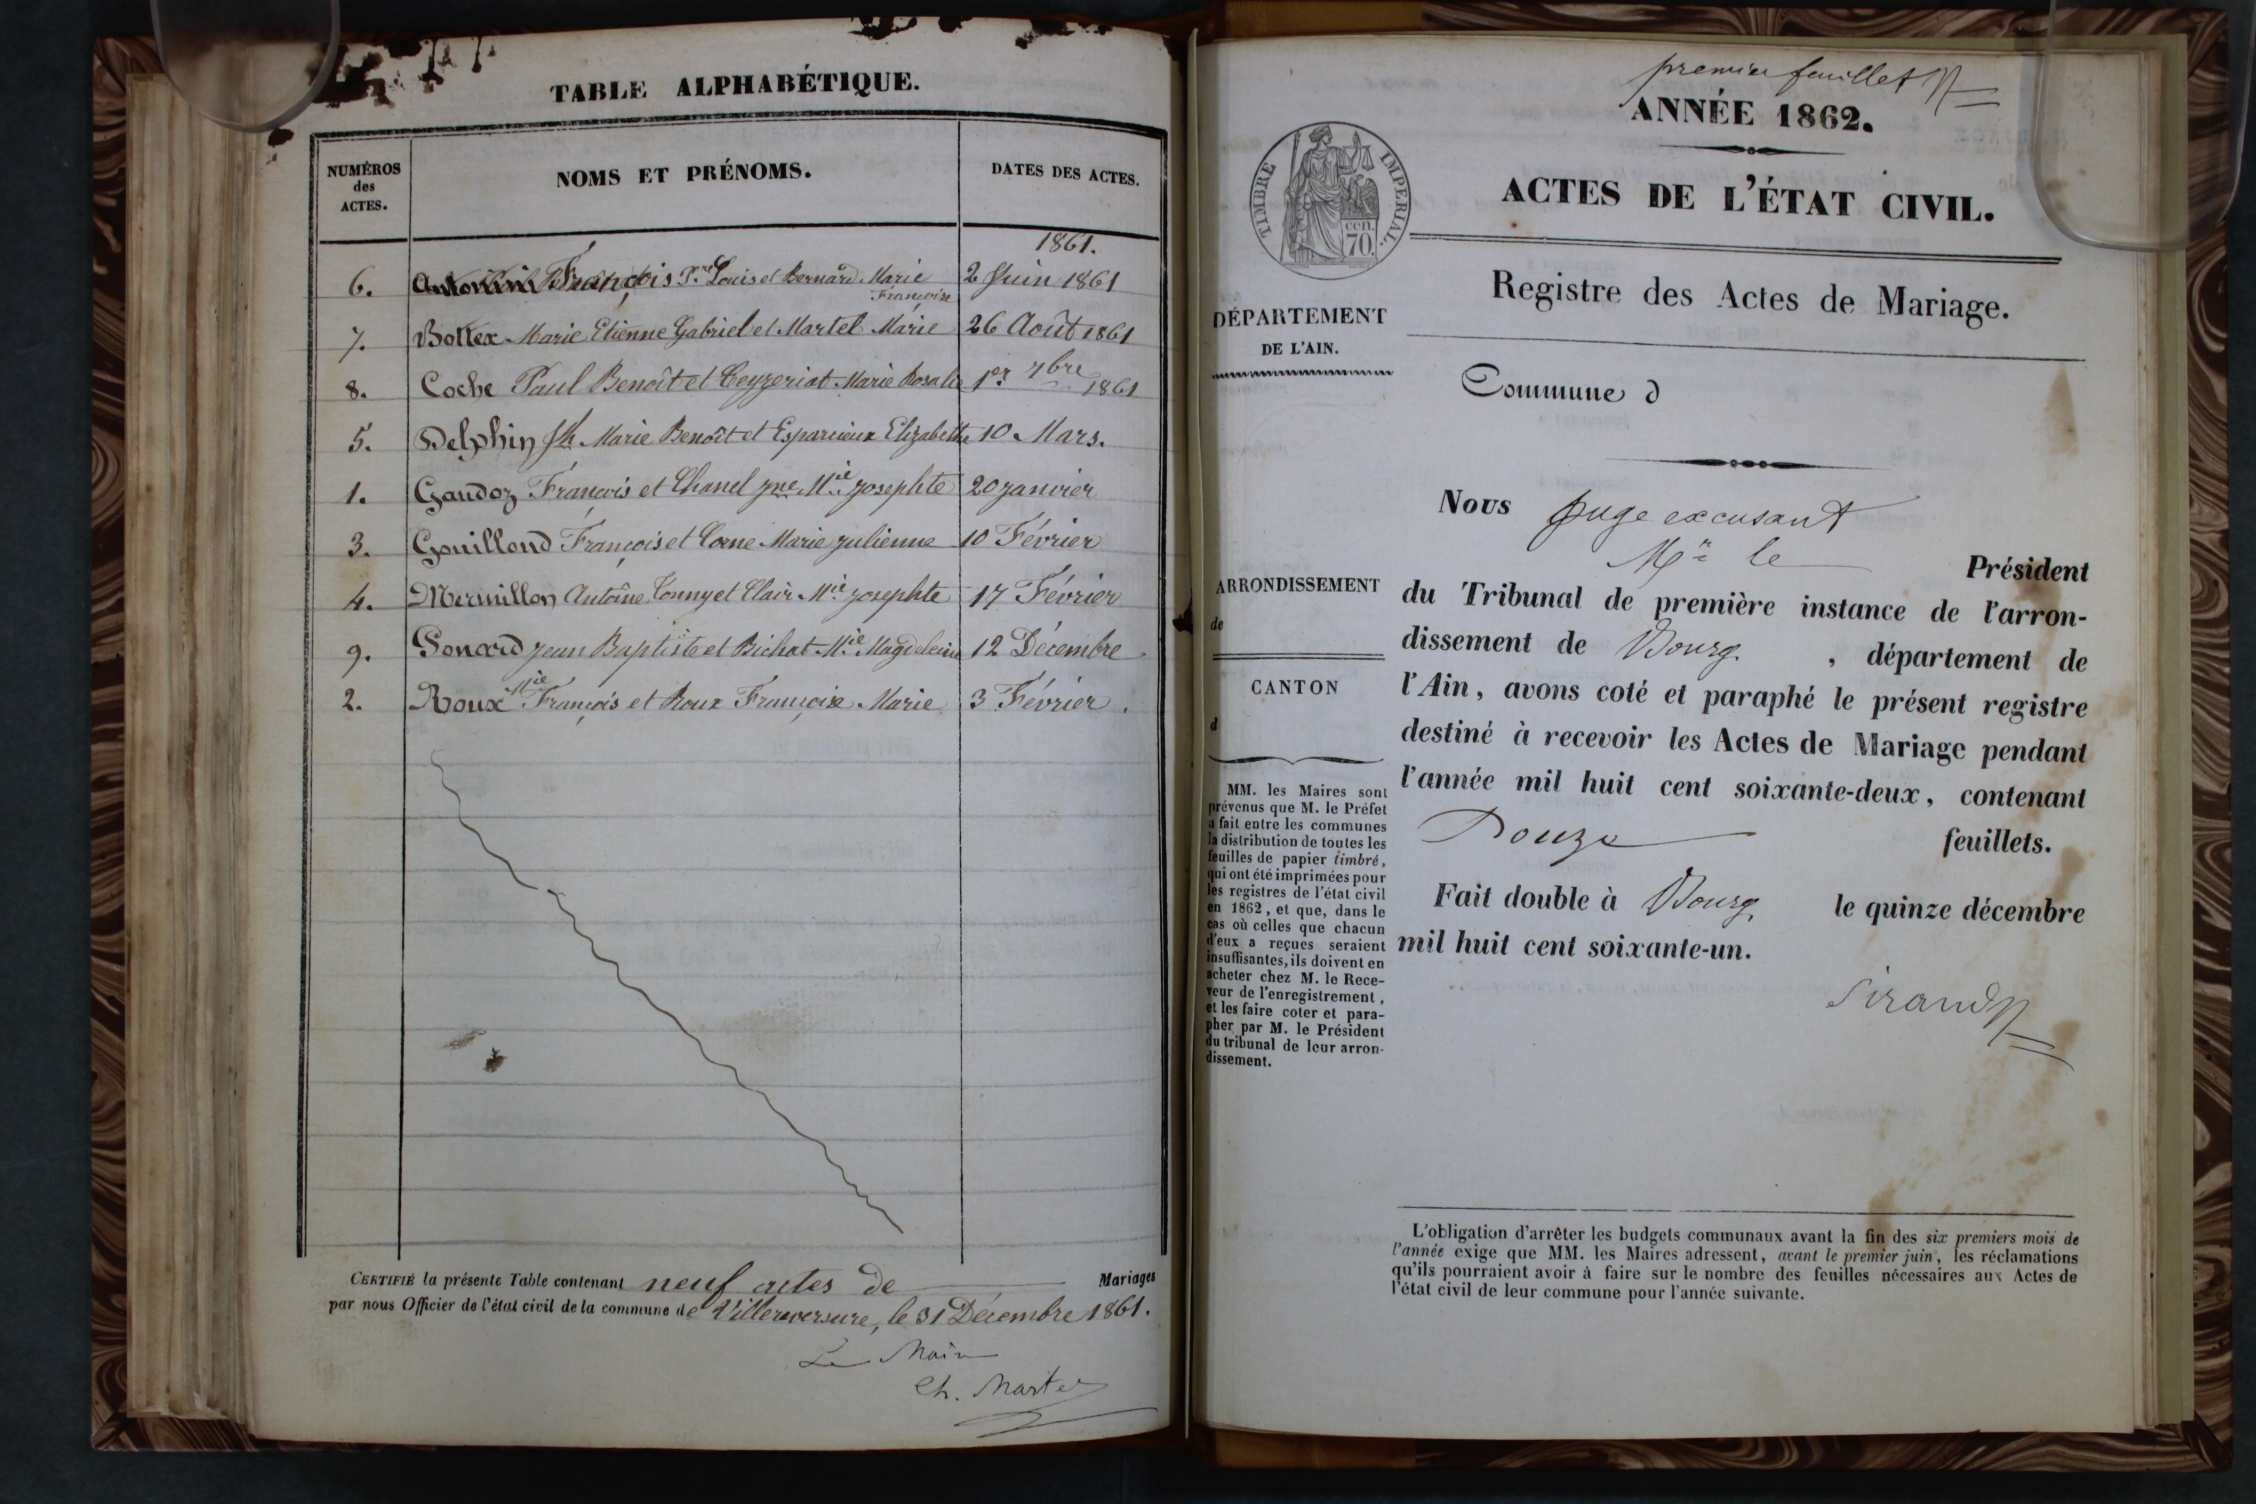 TABLE ALPHABÉTIQUE.
NUMÉROS des ACTES. NOMS ET PRÉNOMS. DATES DES ACTES.
1861.
6. François Louis et Bernard Marie Françoise 2 Juin 1861
7. Bottex Marie Etienne Gabriel et Martel Marie 26 Août 1861
8. Coche Paul Benoît et Ceyzeriat Marie Rosalie 1er 7bre 1861
5. Delphin Jh Marie Benoît et Esparcieux Elizabethe 10 Mars.
1. Gaudoz François et Chanel Jne Mie Josephte 20 Janvier
3. Gouilloud François et Corne Marie Julienne 10 Février
4. Mermillon Antoine Tonny et Clair Mie Josephte 17 Février
9. Ponard Jean Baptiste et Bichat Mie Magdeleine 12 Décembre.
2. Roux Mie François et Roux Françoise Marie 3 Février.
CERTIFIÉ la présente Table contenant neuf actes de Mariages
par nous Officier de l'état civil de la commune de Villereversure, le 31 Décembre 1861.
Le Maire
Ch. Martel
premier feuillet
ANNÉE 1862.
TIMBRE IMPERIAL.
CEN. 70.
ACTES DE L'ÉTAT CIVIL.
Registre des Actes de Mariage.
DÉPARTEMENT
DE L'AIN.
ARRONDISSEMENT
de
CANTON
d
MM. les Maires sont
prévenus que M. le Préfet
a fait entre les communes
la distribution de toutes les
feuilles de papier timbré,
qui ont été imprimées pour
les registres de l'état civil
en 1862, et que, dans le
cas où celles que chacun
d'eux a reçues seraient
insuffisantes, ils doivent en
acheter chez M. le Rece-
veur de l'enregistrement,
et les faire coter et para-
pher par M. le Président
du tribunal de leur arron-
dissement.
Commune d
Nous Juge excusant
Mr le Président
du Tribunal de première instance de l'arron-
dissement de Bourg, département de
l'Ain, avons coté et paraphé le présent registre
destiné à recevoir les Actes de Mariage pendant
l'année mil huit cent soixante-deux, contenant
Douze feuillets.
Fait double à Bourg le quinze décembre
mil huit cent soixante-un.
Sirand
L'obligation d'arrêter les budgets communaux avant la fin des six premiers mois de
l'année exige que MM. les Maires adressent, avant le premier juin, les réclamations
qu'ils pourraient avoir à faire sur le nombre des feuilles nécessaires aux Actes de
l'état civil de leur commune pour l'année suivante.